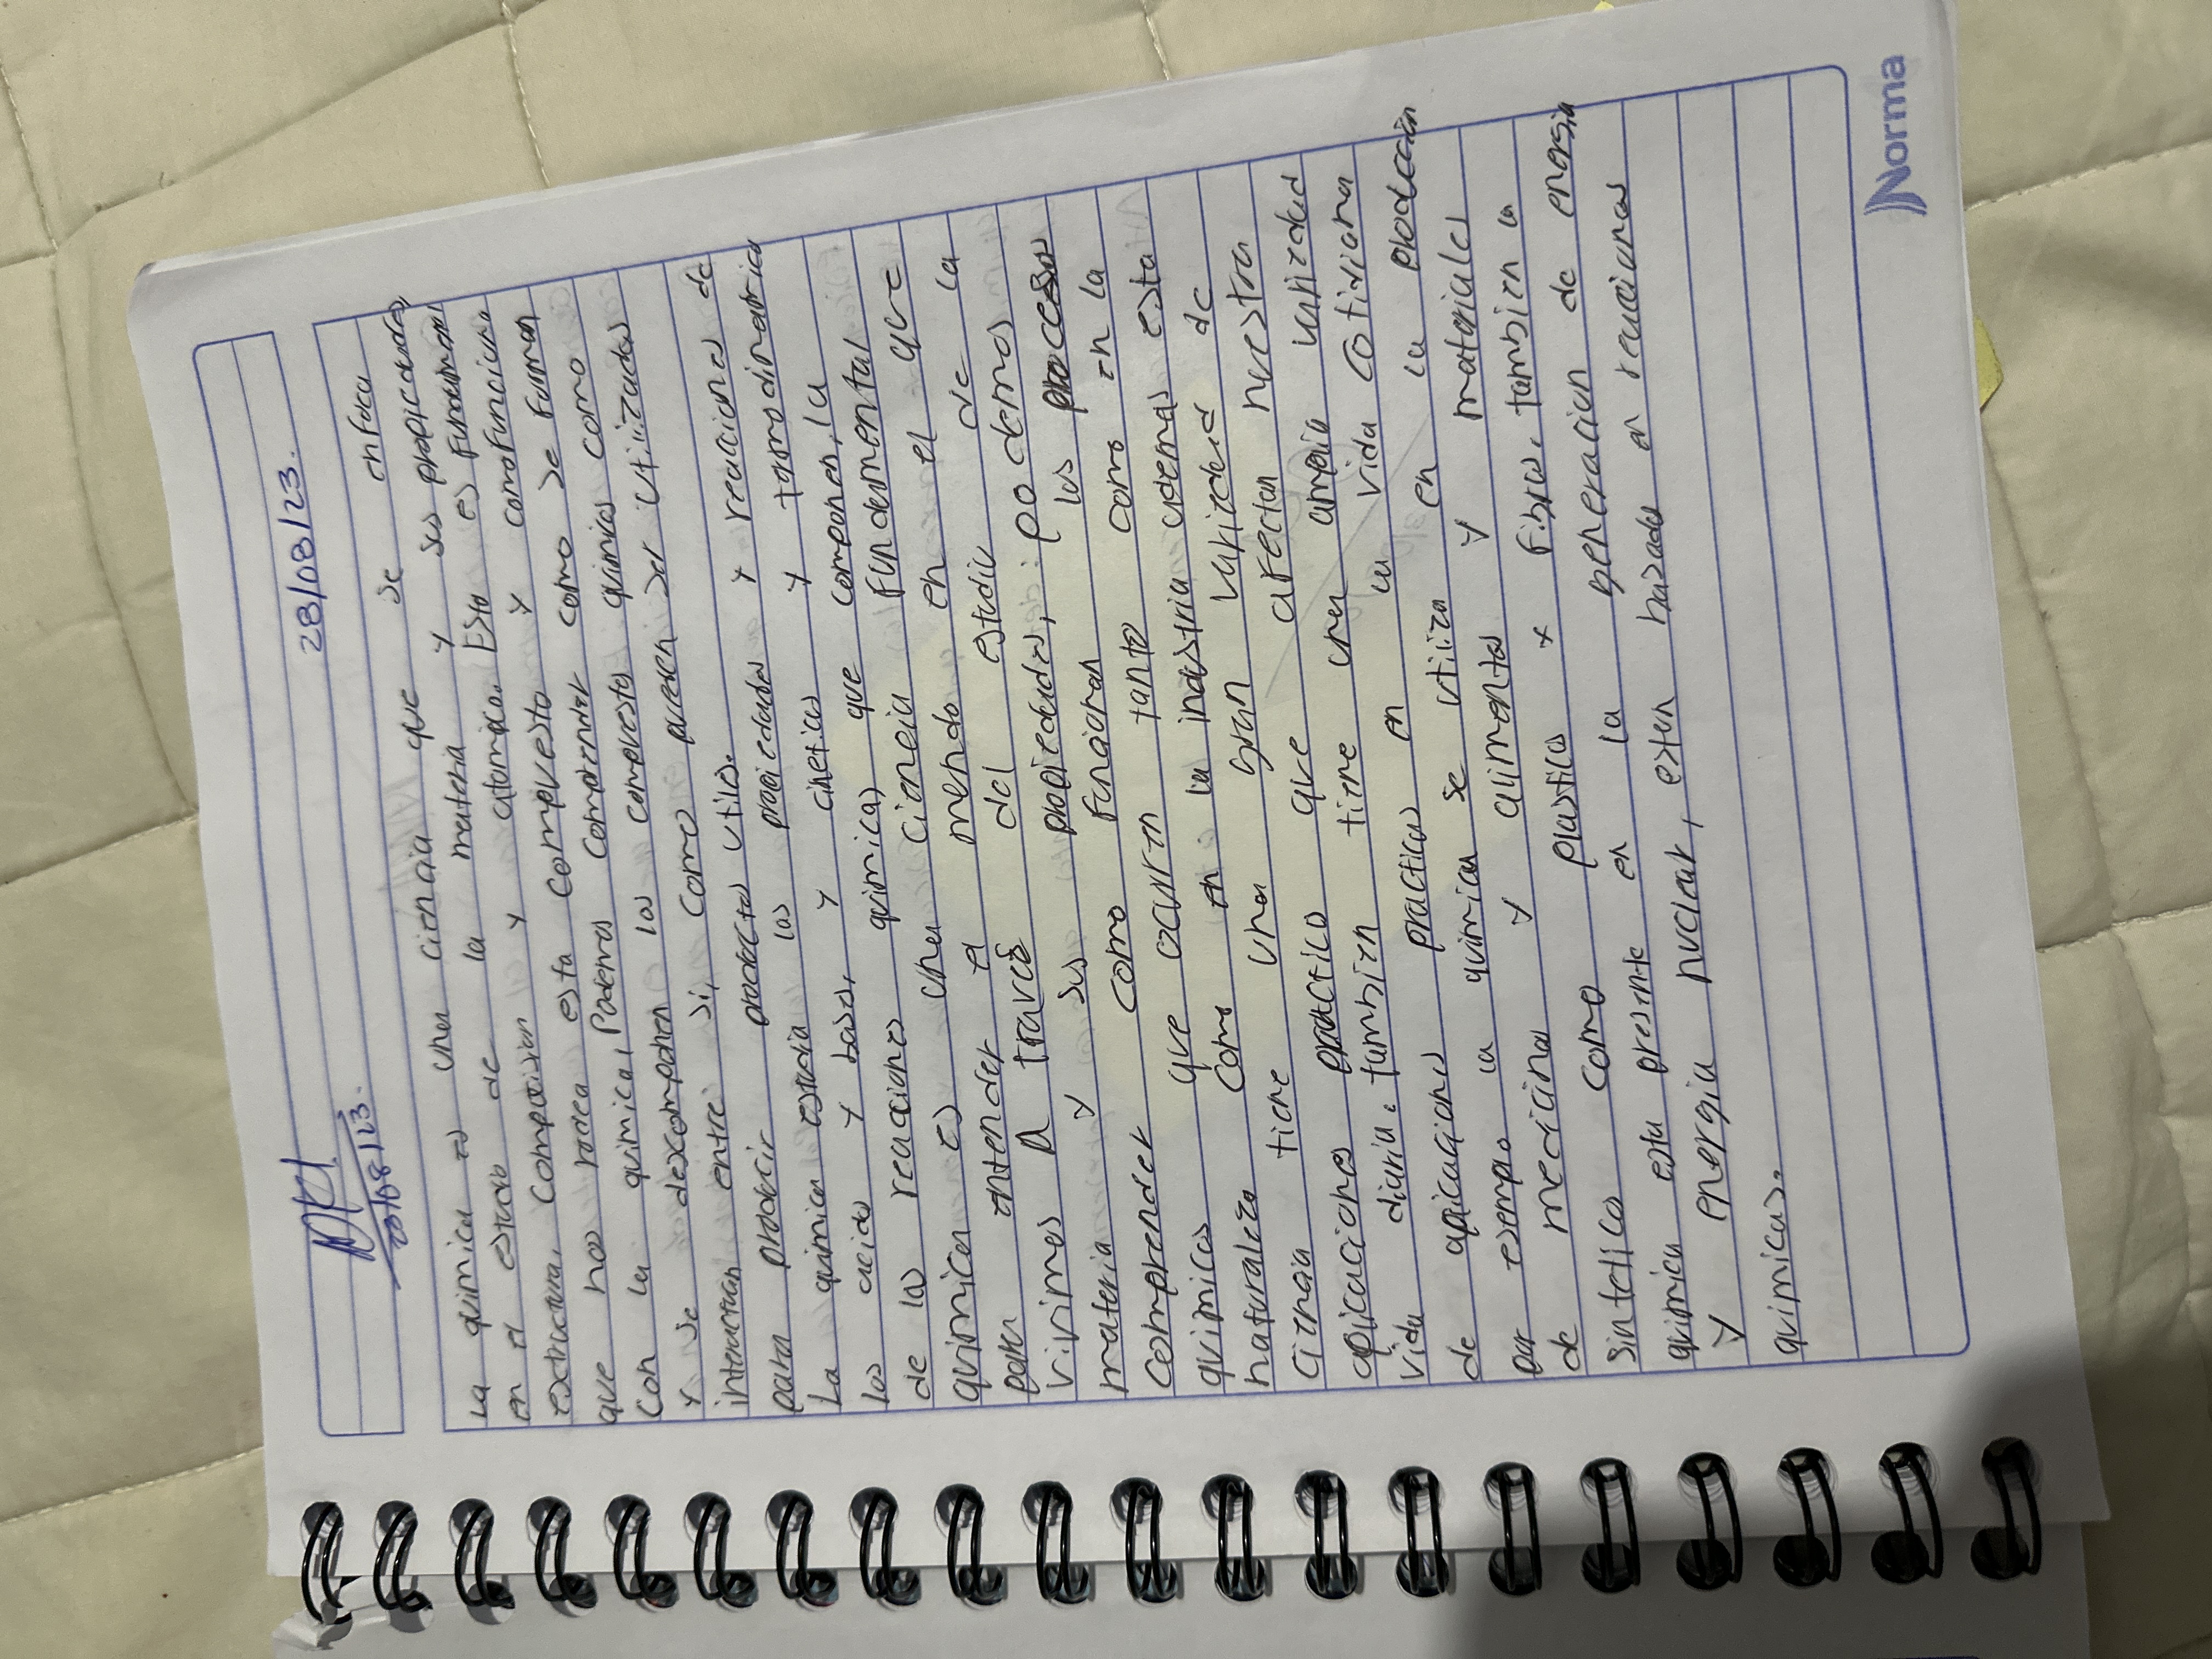 28/08/23.
28/08/23.
La quimica es una ciencia que se enfoca
en el estudio de la materia y sus propiedades
estructura, composicion y atomica. Esto es fundamental
que nos rodea esta compuesto y como funciona
con la quimica, Podemos comprender como se forman
y se descomponen los compuestos quimicos como
interactuan entre si, como pueden ser utilizados
para producir productos utiles.
La quimica estudia las propiedades y reacciones de
los acidos y bases, y cineticas y termodinamica
de las reacciones quimicas que componen, la
quimica es una ciencia fundamental que
para entender el mundo en el que
vivimos A traves del estudio de la
materia y sus propiedades, podemos
comprender como funcionan los procesos
quimicos que ocurren tanto como en la
naturaleza como en la industria ademas esta
ciencia tiene una gran variedad de
aplicaciones practico que afectan nuestra
vida diaria. tambien tiene una amplia variedad
de aplicaciones practicas en la vida cotidiana
por esemplo la quimica se utiliza en la produccion
de medicina y alimentos y materiales
Sintetico como plastico y fibra, tambien la
quimica esta presente en la generacion de energia
y energia nuclear, estan basados en reacciones
quimicas.
Norma